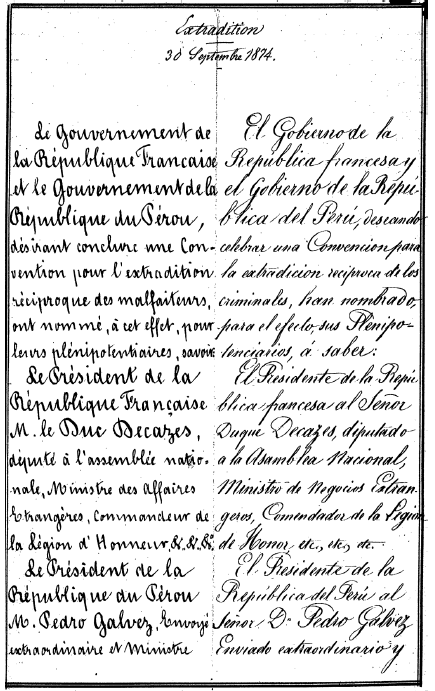 Extradition
30 Septembre 1874.
Le Gouvernement de
la République Française
et le Gouvernement de la
République du Pérou,
désirant conclure une Con-
vention pour l'extradition
réciproque des malfaiteurs,
ont nommé, à cet effet, pour
leurs plénipotentiaires, savoir
Le Président de la
République Française
M. le Duc Decazes,
député à l'assemblée natio-
nale, Ministre des Affaires
Etrangères, Commandeur de
la Légion d'Honneur, &. &. &.
Le Président de la
République du Pérou
M. Pedro Galvez, Envoyé
extraordinaire et Ministre
El Gobierno de la
República francesa y
el Gobierno de la Repú-
blica del Perú, deseando
celebrar una Convencion para
la extradicion reciproca de los
criminales, han nombrado,
para el efecto, sus Plenipo-
tenciarios, á saber:
El Presidente de la Repú-
blica francesa al Señor
Duque Decazes, diputado
a la Asamblea Nacional,
Ministro de Negocios Estran-
geros, Comendador de la Legion
de Honor, etc, etc, etc.
El Presidente de la
República del Perú al
Señor Dn Pedro Gálvez
Enviado extraordinario y